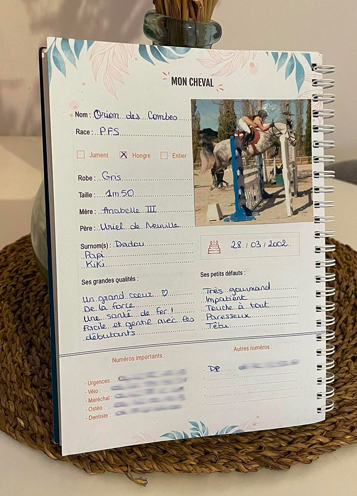 MON CHEVAL
Nom : Orion des Combes
Race : P.F.S
Jument X Hongre Entier
Robe : Gris
Taille : 1m50
Mère : Anabelle III
Père : Uriel de
Surnom(s) : Dadou
Papi
Kiki
28 / 03 / 2002
Ses grandes qualités :
Un grand coeur ♡
De la force
Une santé de fer !
Facile et gentil avec les
débutants
Ses petits défauts :
Très gourmand
Impatient
Touche à tout
Paresseux
Têtu
Numéros importants :
- Urgences
- Véto :
- Maréchal
- Ostéo
- Dentiste
Autres numéros :
DP